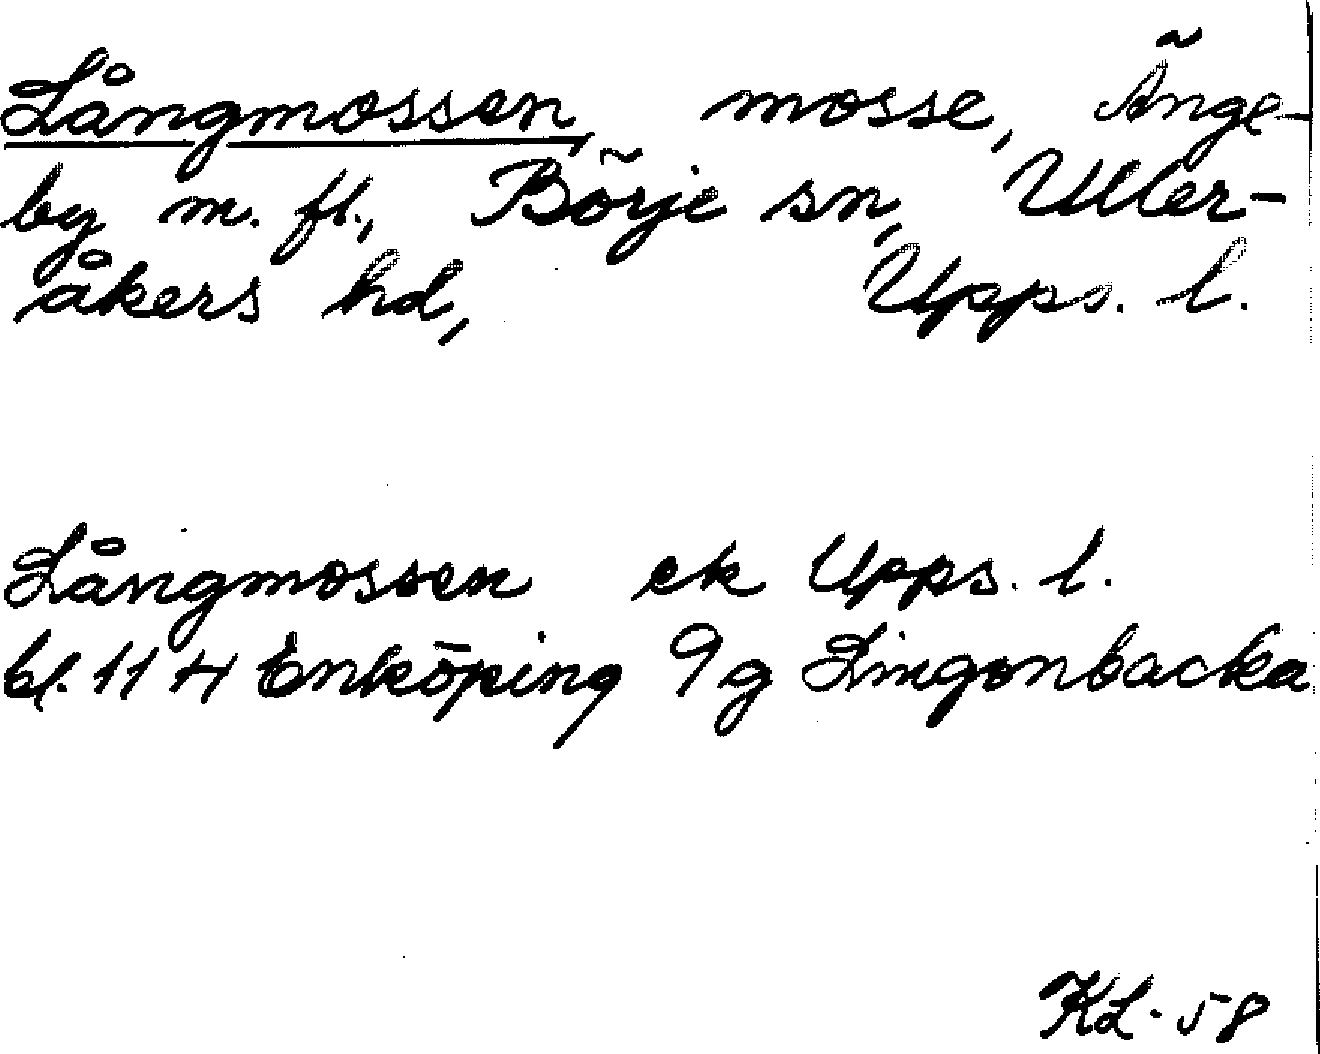 Långmossen, mosse, Änge-
by m. fl., Börje sn, Uller-
åkers hd, Upps. l.
Långmossen ek Upps. l.
bl. 11 H Enköping 9g Lingonbacka
KL. 58